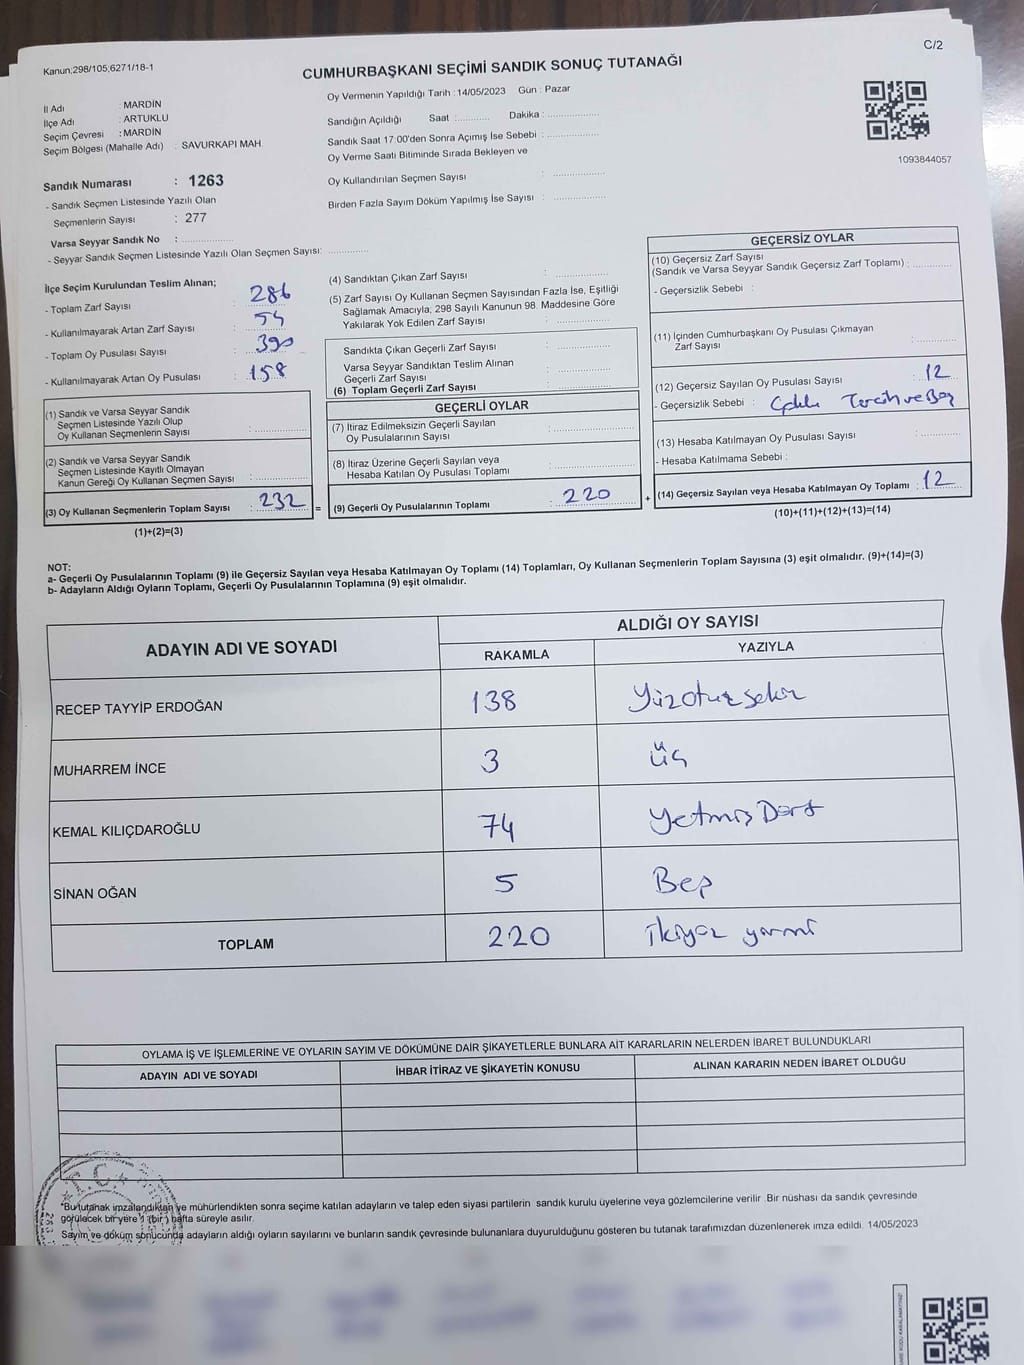 Kanun;298/105;6271/18-1
C/2
CUMHURBAŞKANI SEÇİMİ SANDIK SONUÇ TUTANAĞI
İl Adı : MARDİN
İlçe Adı : ARTUKLU
Seçim Çevresi : MARDİN
Seçim Bölgesi (Mahalle Adı) : SAVURKAPI MAH.
Oy Vermenin Yapıldığı Tarih : 14/05/2023 Gün : Pazar
Sandığın Açıldığı Saat :........... Dakika :................
Sandık Saat 17:00'den Sonra Açımış İse Sebebi :................
Oy Verme Saati Bitiminde Sırada Bekleyen ve
Oy Kullandırılan Seçmen Sayısı : ................
Birden Fazla Sayım Döküm Yapılmış İse Sayısı : ................
1093844057
Sandık Numarası : 1263
- Sandık Seçmen Listesinde Yazılı Olan
Seçmenlerin Sayısı : 277
Varsa Seyyar Sandık No : ................
- Seyyar Sandık Seçmen Listesinde Yazılı Olan Seçmen Sayısı: ............
İlçe Seçim Kurulundan Teslim Alınan;
- Toplam Zarf Sayısı : 286
- Kullanılmayarak Artan Zarf Sayısı : 54
- Toplam Oy Pusulası Sayısı : 390
- Kullanılmayarak Artan Oy Pusulası : 158
(1) Sandık ve Varsa Seyyar Sandık
Seçmen Listesinde Yazılı Olup
Oy Kullanan Seçmenlerin Sayısı : ................
(2) Sandık ve Varsa Seyyar Sandık
Seçmen Listesinde Kayıtlı Olmayan
Kanun Gereği Oy Kullanan Seçmen Sayısı : ................
(3) Oy Kullanan Seçmenlerin Toplam Sayısı : 232 =
(1)+(2)=(3)
(4) Sandıktan Çıkan Zarf Sayısı : ................
(5) Zarf Sayısı Oy Kullanan Seçmen Sayısından Fazla İse, Eşitliği
Sağlamak Amacıyla; 298 Sayılı Kanunun 98. Maddesine Göre
Yakılarak Yok Edilen Zarf Sayısı : ................
Sandıkta Çıkan Geçerli Zarf Sayısı : ................
Varsa Seyyar Sandıktan Teslim Alınan
Geçerli Zarf Sayısı : ................
(6) Toplam Geçerli Zarf Sayısı : ................
GEÇERLİ OYLAR
(7) İtiraz Edilmeksizin Geçerli Sayılan
Oy Pusulalarının Sayısı : ................
(8) İtiraz Üzerine Geçerli Sayılan veya
Hesaba Katılan Oy Pusulası Toplamı : ................
(9) Geçerli Oy Pusulalarının Toplamı : 220 +
GEÇERSİZ OYLAR
(10) Geçersiz Zarf Sayısı
(Sandık ve Varsa Seyyar Sandık Geçersiz Zarf Toplamı) : ............
- Geçersizlik Sebebi :
(11) İçinden Cumhurbaşkanı Oy Pusulası Çıkmayan
Zarf Sayısı : ............
(12) Geçersiz Sayılan Oy Pusulası Sayısı : 12
- Geçersizlik Sebebi : Tercih ve Boş
(13) Hesaba Katılmayan Oy Pusulası Sayısı : ............
- Hesaba Katılmama Sebebi :
(14) Geçersiz Sayılan veya Hesaba Katılmayan Oy Toplamı : 12
(10)+(11)+(12)+(13)=(14)
NOT:
a- Geçerli Oy Pusulalarının Toplamı (9) ile Geçersiz Sayılan veya Hesaba Katılmayan Oy Toplamı (14) Toplamları, Oy Kullanan Seçmenlerin Toplam Sayısına (3) eşit olmalıdır. (9)+(14)=(3)
b- Adayların Aldığı Oyların Toplamı, Geçerli Oy Pusulalarının Toplamına (9) eşit olmalıdır.
ADAYIN ADI VE SOYADI
ALDIĞI OY SAYISI
RAKAMLA YAZIYLA
RECEP TAYYİP ERDOĞAN 138 Yüzotuzsekiz
MUHARREM İNCE 3 üç
KEMAL KILIÇDAROĞLU 74 Yetmiş Dört
SİNAN OĞAN 5 Beş
TOPLAM 220 ikiyüz yirmi
OYLAMA İŞ VE İŞLEMLERİNE VE OYLARIN SAYIM VE DÖKÜMÜNE DAİR ŞİKAYETLERLE BUNLARA AİT KARARLARIN NELERDEN İBARET BULUNDUKLARI
ADAYIN ADI VE SOYADI İHBAR İTİRAZ VE ŞİKAYETİN KONUSU ALINAN KARARIN NEDEN İBARET OLDUĞU
T.C.
*Bu tutanak imzalandıktan ve mühürlendikten sonra seçime katılan adayların ve talep eden siyasi partilerin sandık kurulu üyelerine veya gözlemcilerine verilir .Bir nüshası da sandık çevresinde
görülecek bir yere 1 (bir ) hafta süreyle asılır.
Sayım ve döküm sonucunda adayların aldığı oyların sayılarını ve bunların sandık çevresinde bulunanlara duyurulduğunu gösteren bu tutanak tarafımızdan düzenlenerek imza edildi. 14/05/2023